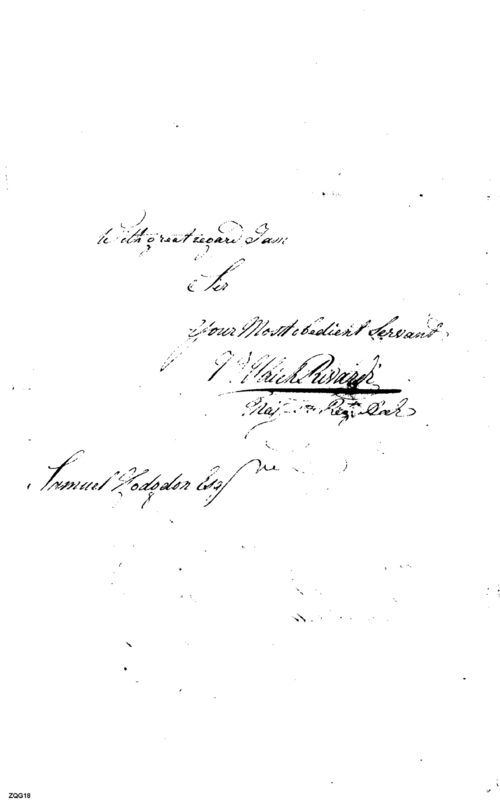 With great regard I am
Sir
Your Most obedient Servant
J. J. Ulrich Rivardi
Maj.
Samuel Hodgdon Esq
ZQG18